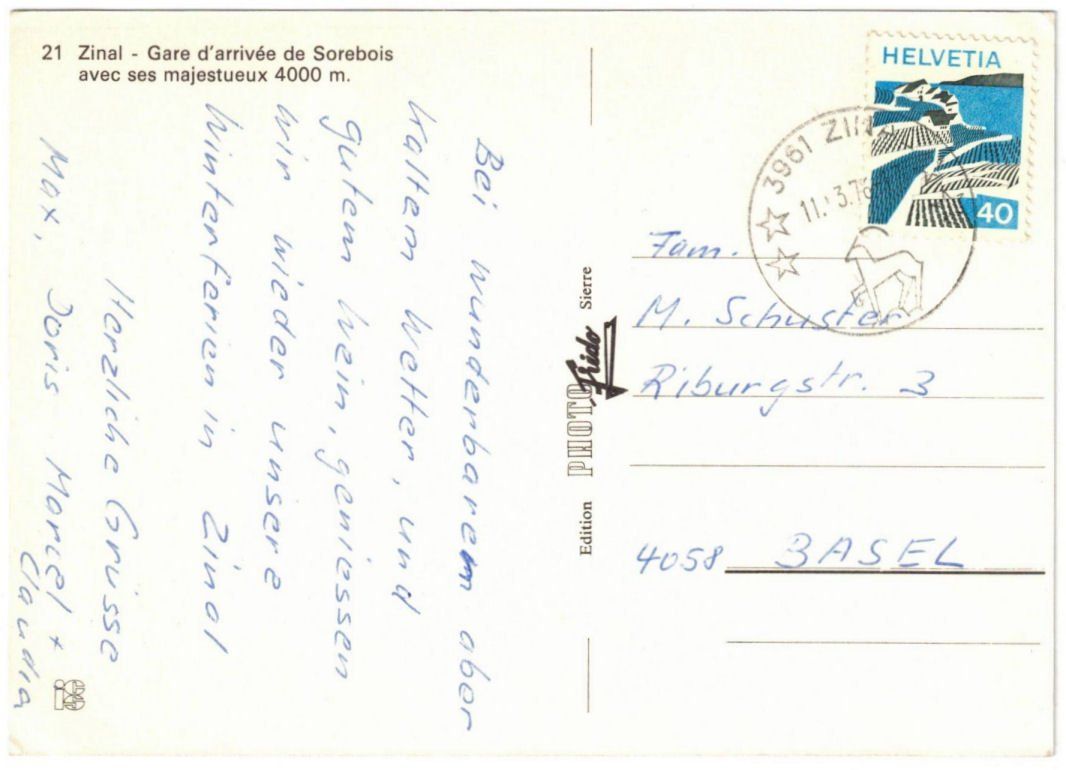 21 Zinal - Gare d'arrivée de Sorebois
avec ses majestueux 4000 m.
Bei wunderbarem aber
kaltem Wetter, und
gutem Wein, geniessen
wir wieder unsere
Winterferien in Zinal
Herzliche Grüsse
Max, Doris Marcel +
Claudia
Edition PHOTO Frido Sierre
HELVETIA
40
3961 ZIN
11.3.76
Fam.
M. Schuster
Riburgstr. 3
4058 BASEL